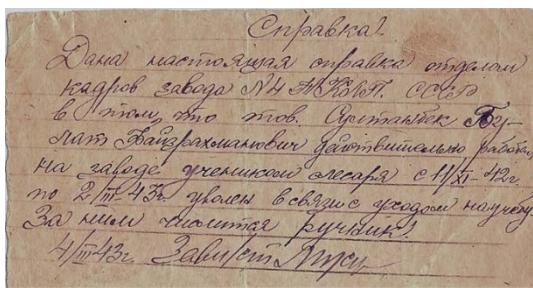 Справка.
Дана настоящая справка отделом
кадров завода №4 НКМП. СССР
в том, что тов. Султанбек Бу-
лат Файзрахманович действительно работал
на заводе учеником слесаря с 11/XI-42г.
по 2/III-43г. уволен в связи с уходом на учебу.
За ним числится ручник.
4/III 43г. Завм/ст